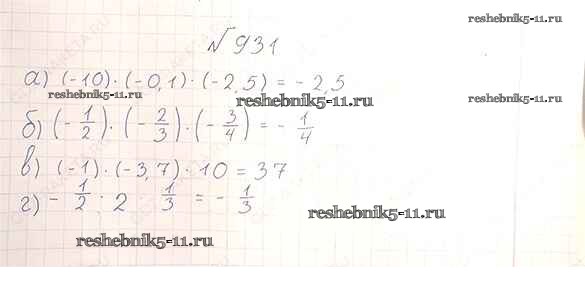 reshebnik5-11.ru
№ 931
а) (-10) · (-0,1) · (-2,5) = -2,5
reshebnik5-11.ru reshebnik5-11.ru reshebnik5-11.ru
б) (-1/2) · (-2/3) · (-3/4) = -1/4
в) (-1) · (-3,7) · 10 = 37
г) -1/2 · 2 1/3 = -1/3
reshebnik5-11.ru
reshebnik5-11.ru